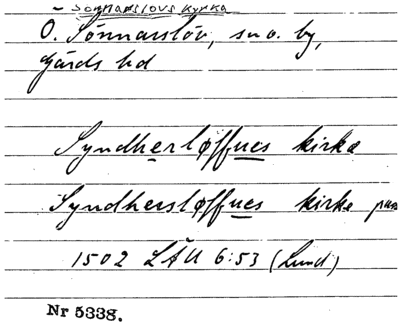 SÖNNARSLÖVS KYRKA
Ö. Sönnarslöv, sn o. by,
Gärds hd
Syndherløffues kirke
Syndhersløffues kirke pass
1502 LÄU 6:53 (Lund)
Nr 5338.